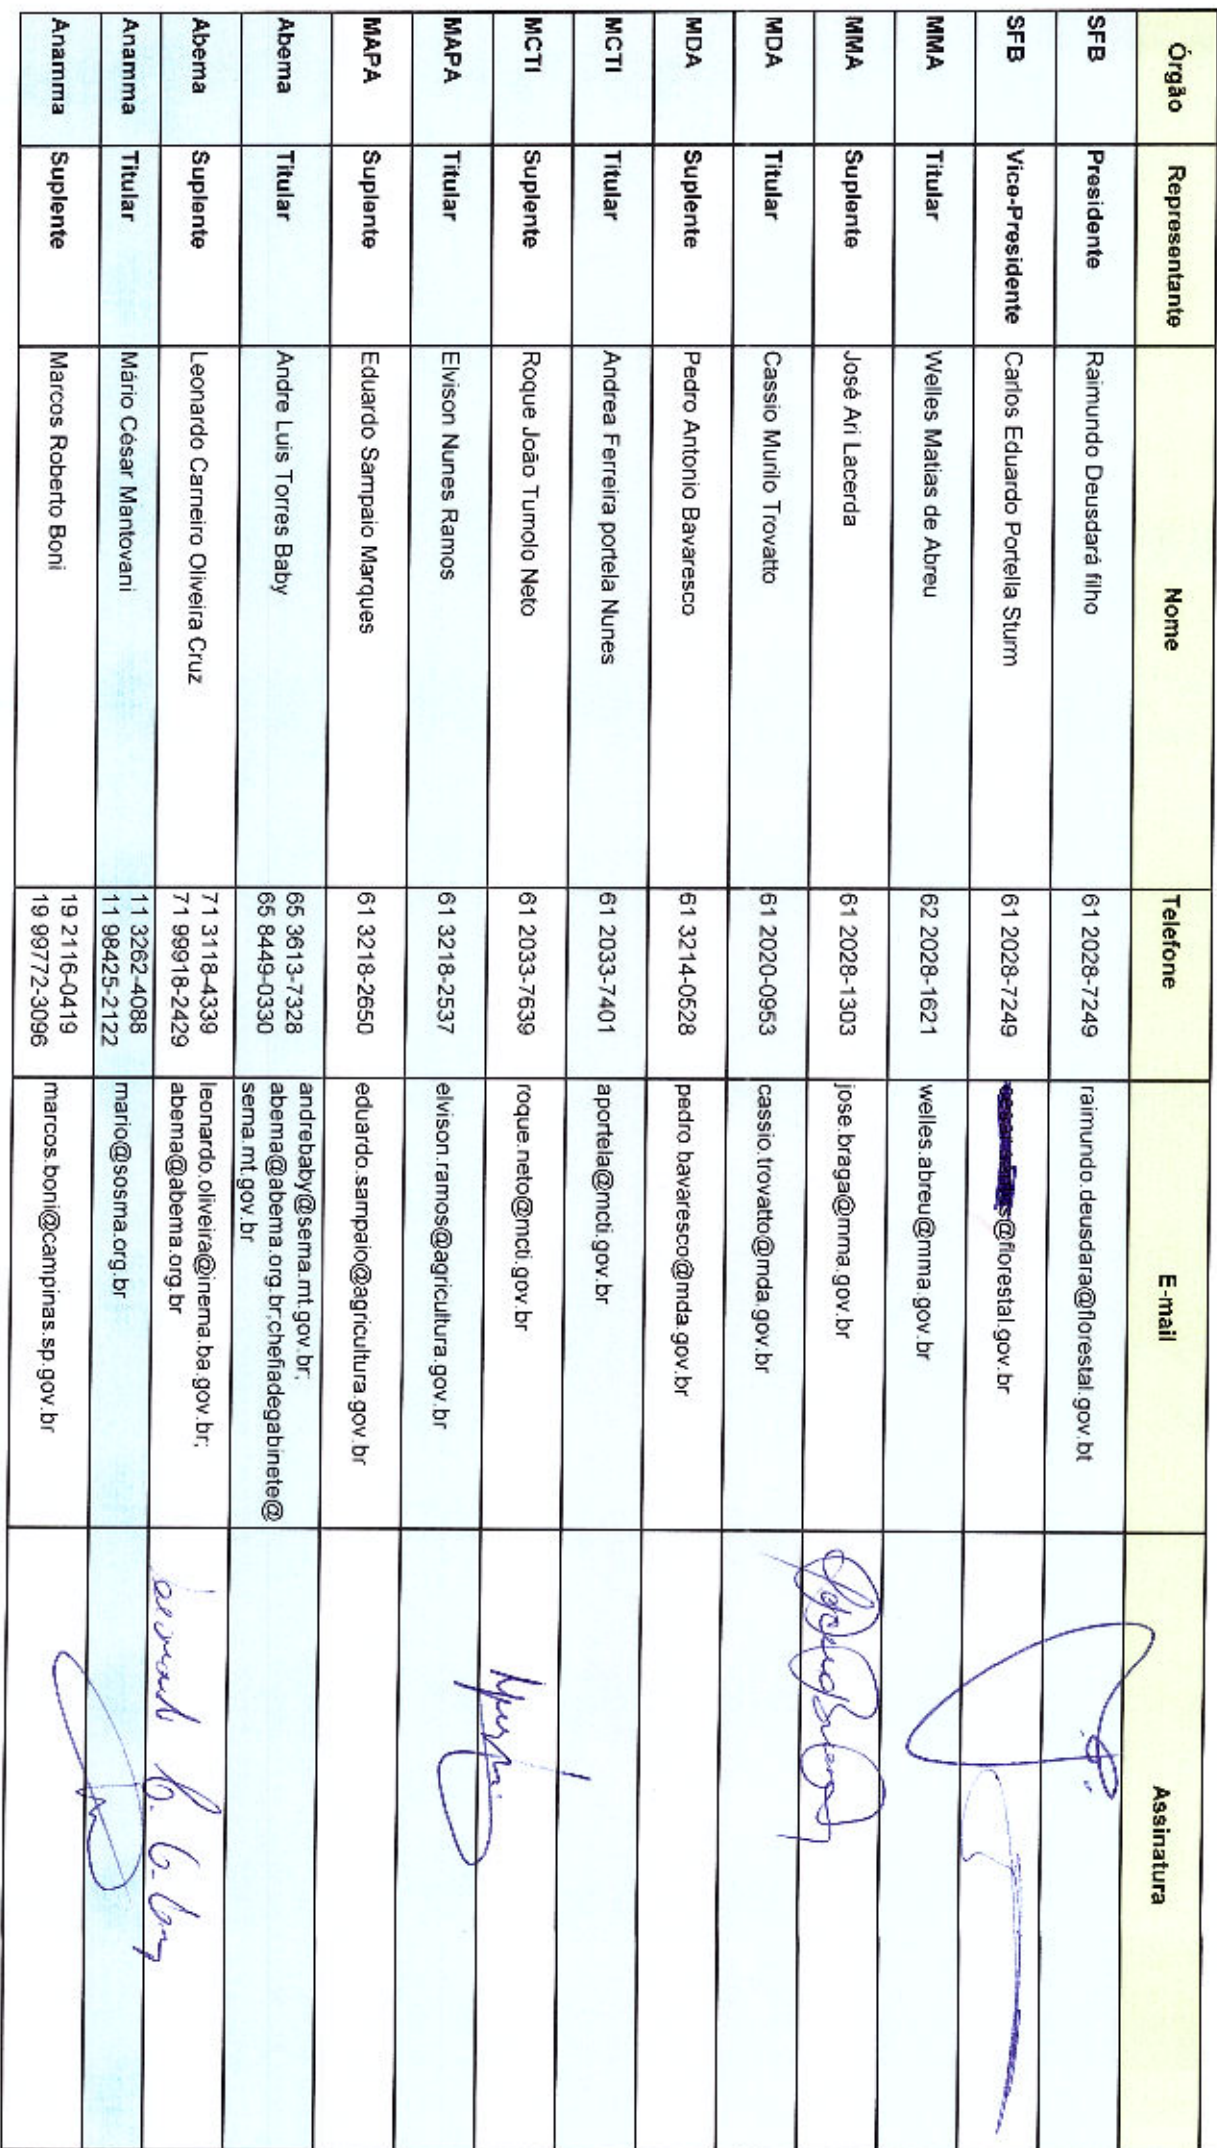 Órgão Representante Nome Telefone E-mail Assinatura
SFB Presidente Raimundo Deusdará filho 61 2028-7249 raimundo.deusdara@florestal.gov.bt
SFB Vice-Presidente Carlos Eduardo Portella Sturm 61 2028-7249 s@florestal.gov.br
MMA Titular Welles Matias de Abreu 62 2028-1621 welles.abreu@mma.gov.br
MMA Suplente José Ari Lacerda 61 2028-1303 jose.braga@mma.gov.br
MDA Titular Cassio Murilo Trovatto 61 2020-0953 cassio.trovatto@mda.gov.br
MDA Suplente Pedro Antonio Bavaresco 61 3214-0528 pedro.bavaresco@mda.gov.br
MCTI Titular Andrea Ferreira portela Nunes 61 2033-7401 aportela@mcti.gov.br
MCTI Suplente Roque João Tumolo Neto 61 2033-7639 roque.neto@mcti.gov.br
MAPA Titular Elvison Nunes Ramos 61 3218-2537 elvison.ramos@agricultura.gov.br
MAPA Suplente Eduardo Sampaio Marques 61 3218-2650 eduardo.sampaio@agricultura.gov.br
Abema Titular Andre Luis Torres Baby 65 3613-7328 andrebaby@sema.mt.gov.br;
65 8449-0330 abema@abema.org.br;chefiadegabinete@
sema.mt.gov.br
Abema Suplente Leonardo Carneiro Oliveira Cruz 71 3118-4339 leonardo.oliveira@inema.ba.gov.br;
71 99918-2429 abema@abema.org.br
Anamma Titular Mário César Mantovani 11 3262-4088 mario@sosma.org.br
11 98425-2122
Anamma Suplente Marcos Roberto Boni 19 2116-0419 marcos.boni@campinas.sp.gov.br
19 99772-3096